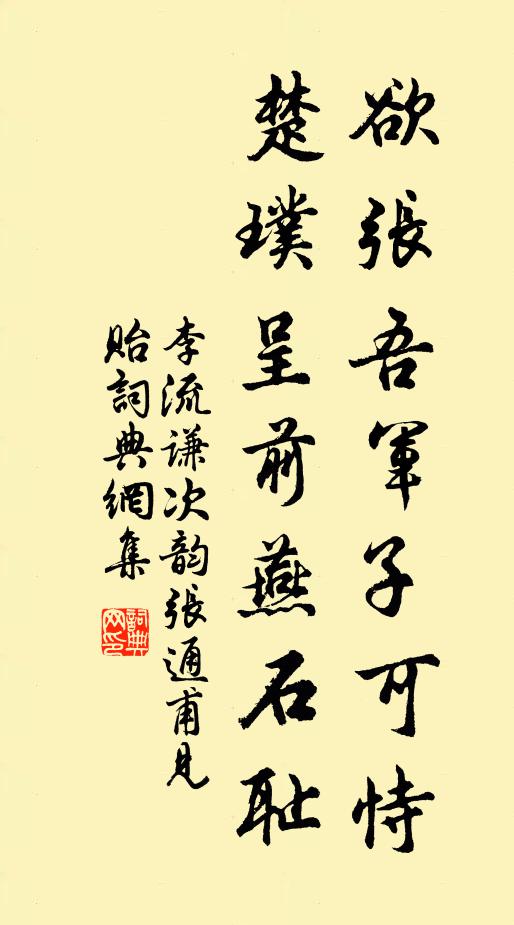 欲張吾軍子可恃
楚璞呈前燕石耻
李流谦次韵張通甫見
貽詞典網集
詞典
网印